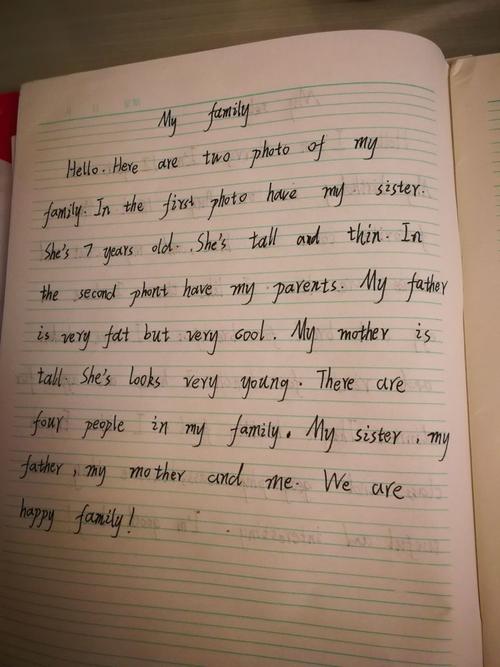 My family
Hello. Here are two photo of my
family. In the first photo have my sister.
She's 7 years old. She's tall and thin. In
the second phont have my parents. My father
is very fat but very cool. My mother is
tall. She's looks very young. There are
four people in my family. My sister, my
father, my mother and me. We are
happy family!